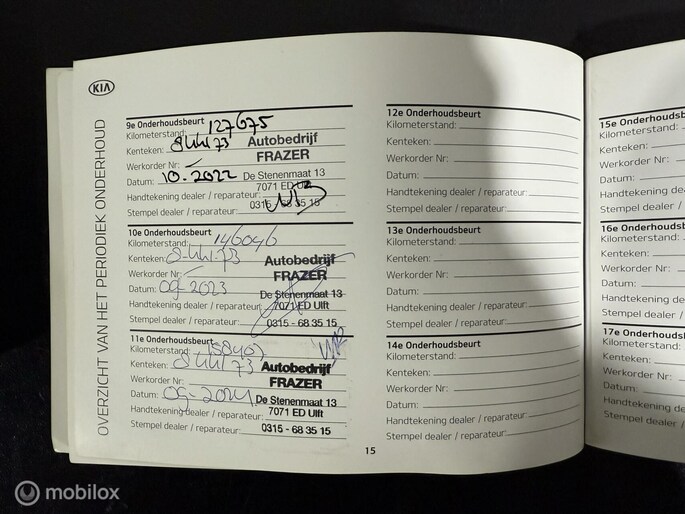 KIA
OVERZICHT VAN HET PERIODIEK ONDERHOUD
9e Onderhoudsbeurt
Kilometerstand: 127675
Kenteken:
Werkorder Nr:
Datum: 10-2022
Handtekening dealer / reparateur:
Stempel dealer / reparateur:
Autobedrijf
FRAZER
De Stenenmaat 13
7071 ED Ulft
0315 - 68 35 15
10e Onderhoudsbeurt
Kilometerstand: 146046
Kenteken:
Werkorder Nr:
Datum: 09-2023
Handtekening dealer / reparateur:
Stempel dealer / reparateur:
Autobedrijf
FRAZER
De Stenenmaat 13
7071 ED Ulft
0315 - 68 35 15
11e Onderhoudsbeurt
Kilometerstand:
Kenteken:
Werkorder Nr:
Datum: 09-2024
Handtekening dealer / reparateur:
Stempel dealer / reparateur:
Autobedrijf
FRAZER
De Stenenmaat 13
7071 ED Ulft
0315 - 68 35 15
12e Onderhoudsbeurt
Kilometerstand:
Kenteken:
Werkorder Nr:
Datum:
Handtekening dealer / reparateur:
Stempel dealer / reparateur:
13e Onderhoudsbeurt
Kilometerstand:
Kenteken:
Werkorder Nr:
Datum:
Handtekening dealer / reparateur:
Stempel dealer / reparateur:
14e Onderhoudsbeurt
Kilometerstand:
Kenteken:
Werkorder Nr:
Datum:
Handtekening dealer / reparateur:
Stempel dealer / reparateur:
15
15e Onderhoudsbeurt
Kilometerstand:
Kenteken:
Werkorder Nr:
Datum:
Handtekening dealer
Stempel dealer /
16e Onderhoudsb
Kilometerstand:
Kenteken:
Werkorder Nr:
Datum:
Handtekening de
Stempel dealer /
17e Onderhoudsb
Kilometerstand:
Kenteken:
Werkorder Nr:
Datum:
Handtekening dea
Stempel dealer / r
mobilox